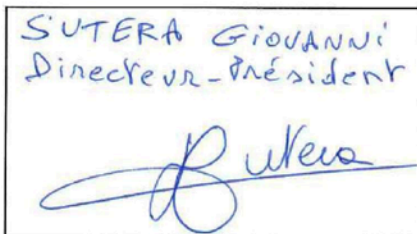 SUTERA GiOVANNi
Directeur-Président
Sutera